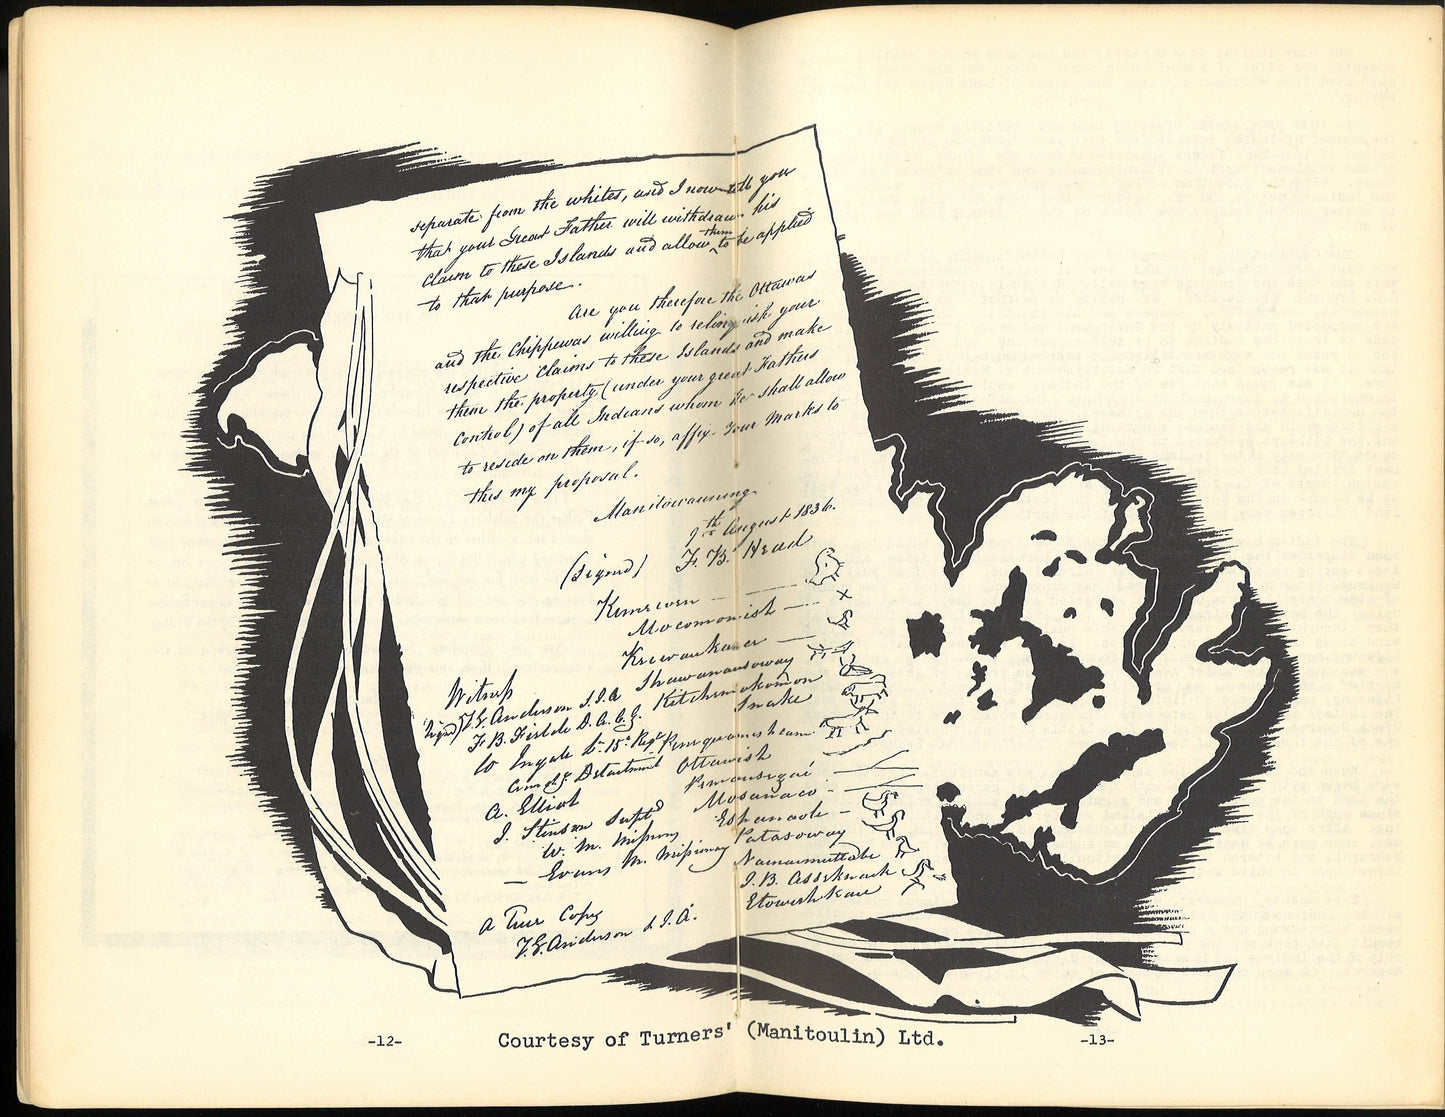 separate from the whites, and I now tell you
that your Great Father will withdraw his
claim to these Islands and allow them to be applied
to that purpose.
Are you therefore the Ottawas
and the Chippewas willing to relinquish your
respective claims to these Islands and make
them the property (under your great Fathers
control) of all Indians whom he shall allow
to reside on them, if so, affix your marks to
this my proposal.
Manitowauning
9th August 1836.
(signed) F. B. Head
Mocomonish
x
Kewaukance
Shawanausoway
Kitchemokomon
Snake
Ottawish
Mosaniko
Espaniole
Patasoway
Naimawmuttabe
J. B. Assekinack
Witness
T. G. Anderson S. I. A
A. Elliot
J. Stinson Supt
W. M. Missions
Evans M. Missionary
A True Copy
T. G. Anderson S. I. A.
-12-
Courtesy of Turners' (Manitoulin) Ltd.
-13-